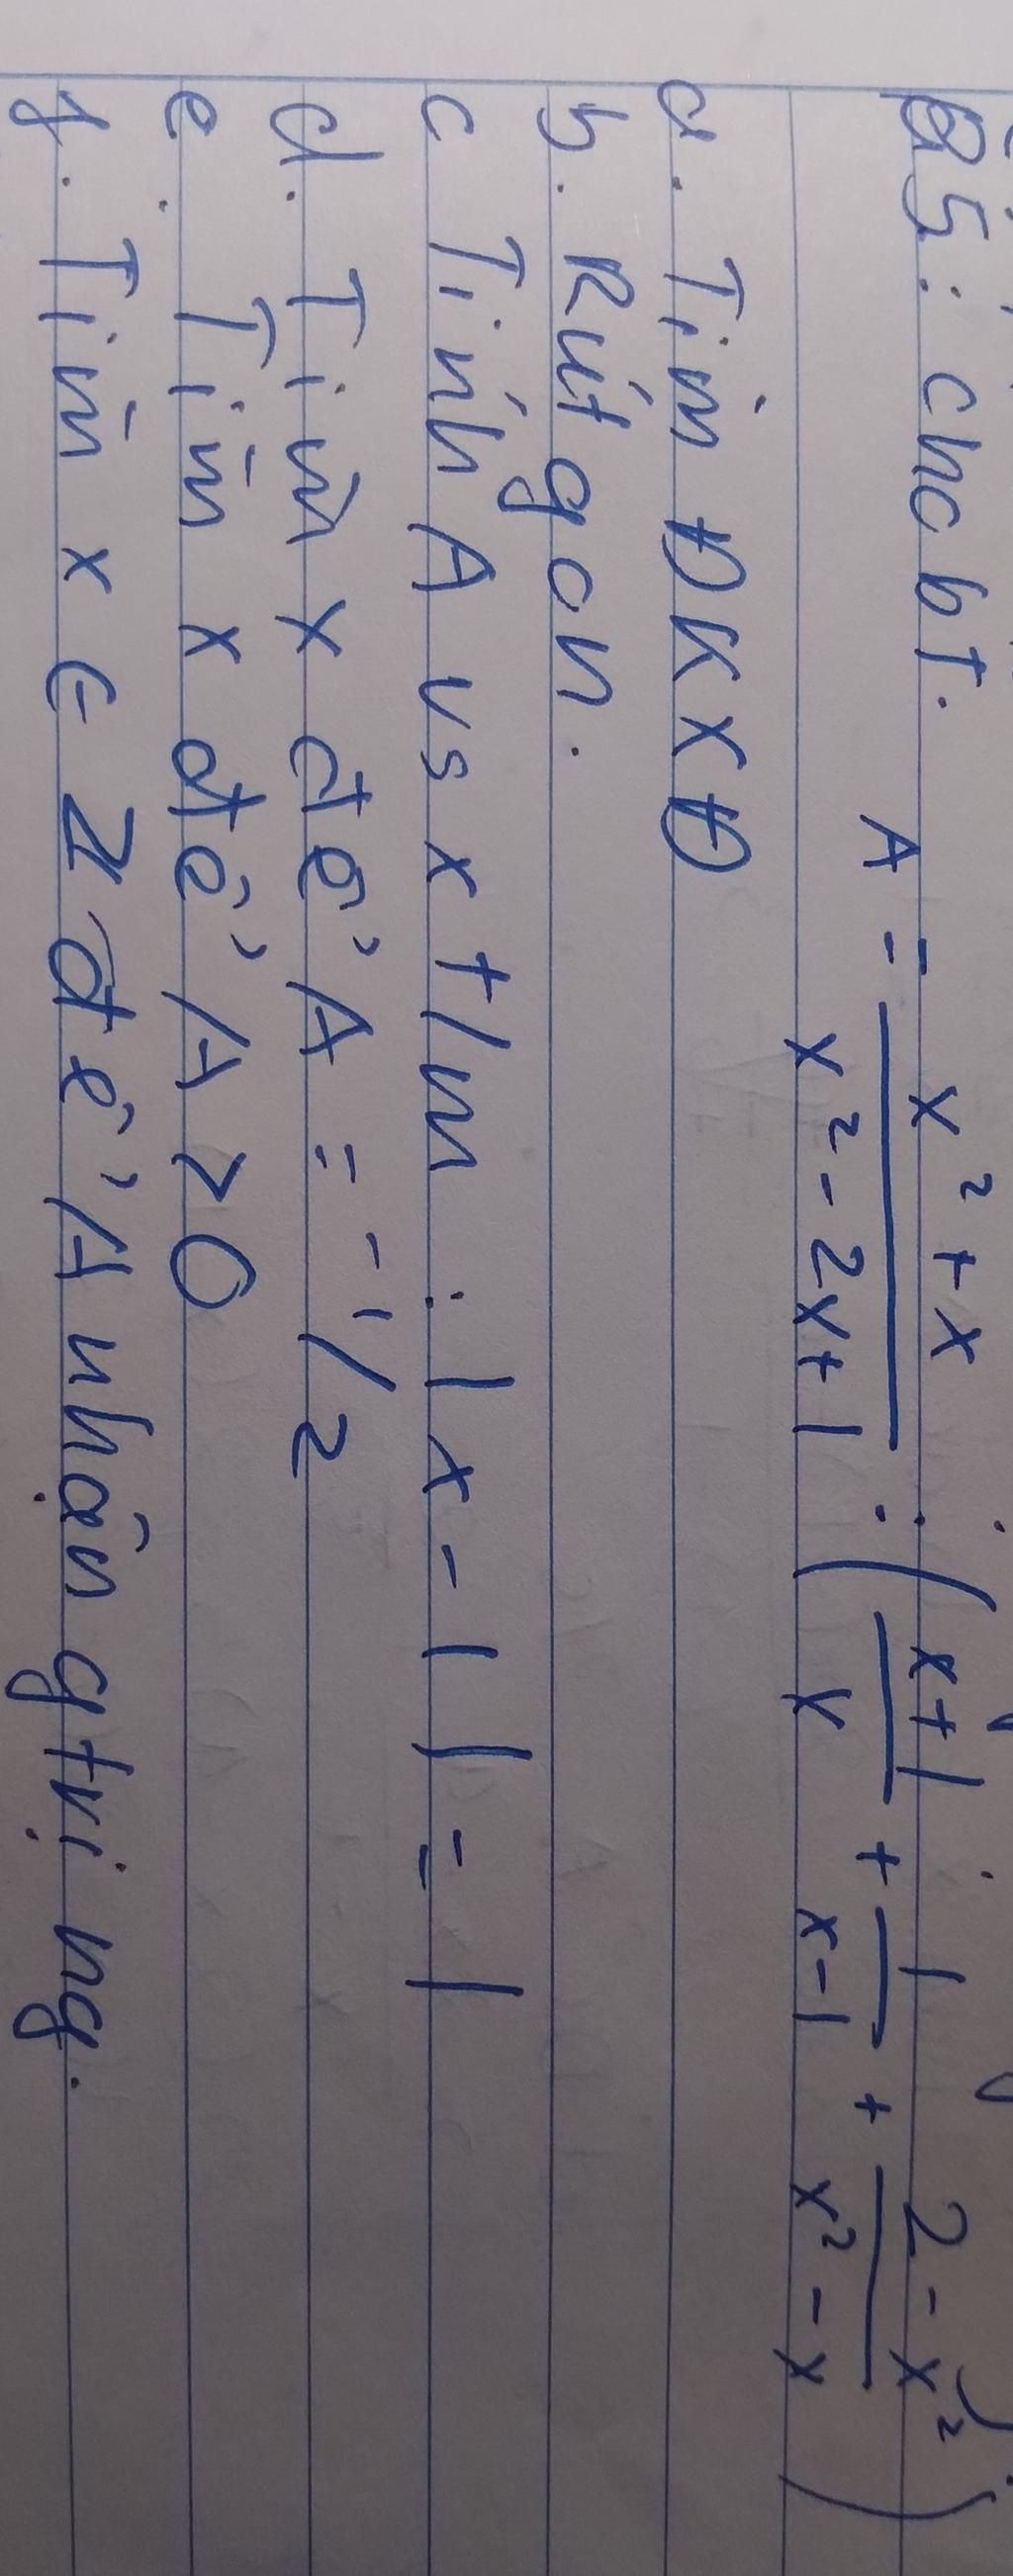 B5: cho bt.
A = (x² + x)/(x² - 2x + 1) : ((x+1)/x + 1/(x-1) + (2 - x²)/(x² - x))
a. Tìm ĐKXĐ
b. Rút gọn.
c Tính A vs x t/m : |x - 1| = 1
d. Tìm x để A = -1/2
e. Tìm x để A > 0
f. Tìm x ∈ Z để A nhận gtrị ng.